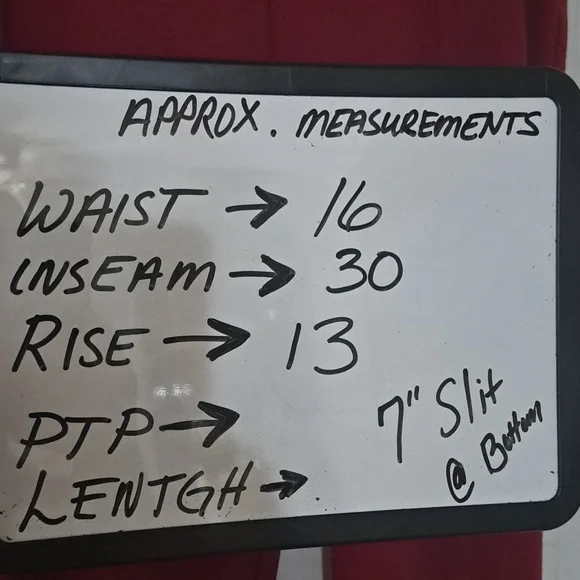 APPROX. MEASUREMENTS
WAIST → 16
INSEAM → 30
RISE → 13
PTP →
LENTGH →
7" Slit
@ Bottom